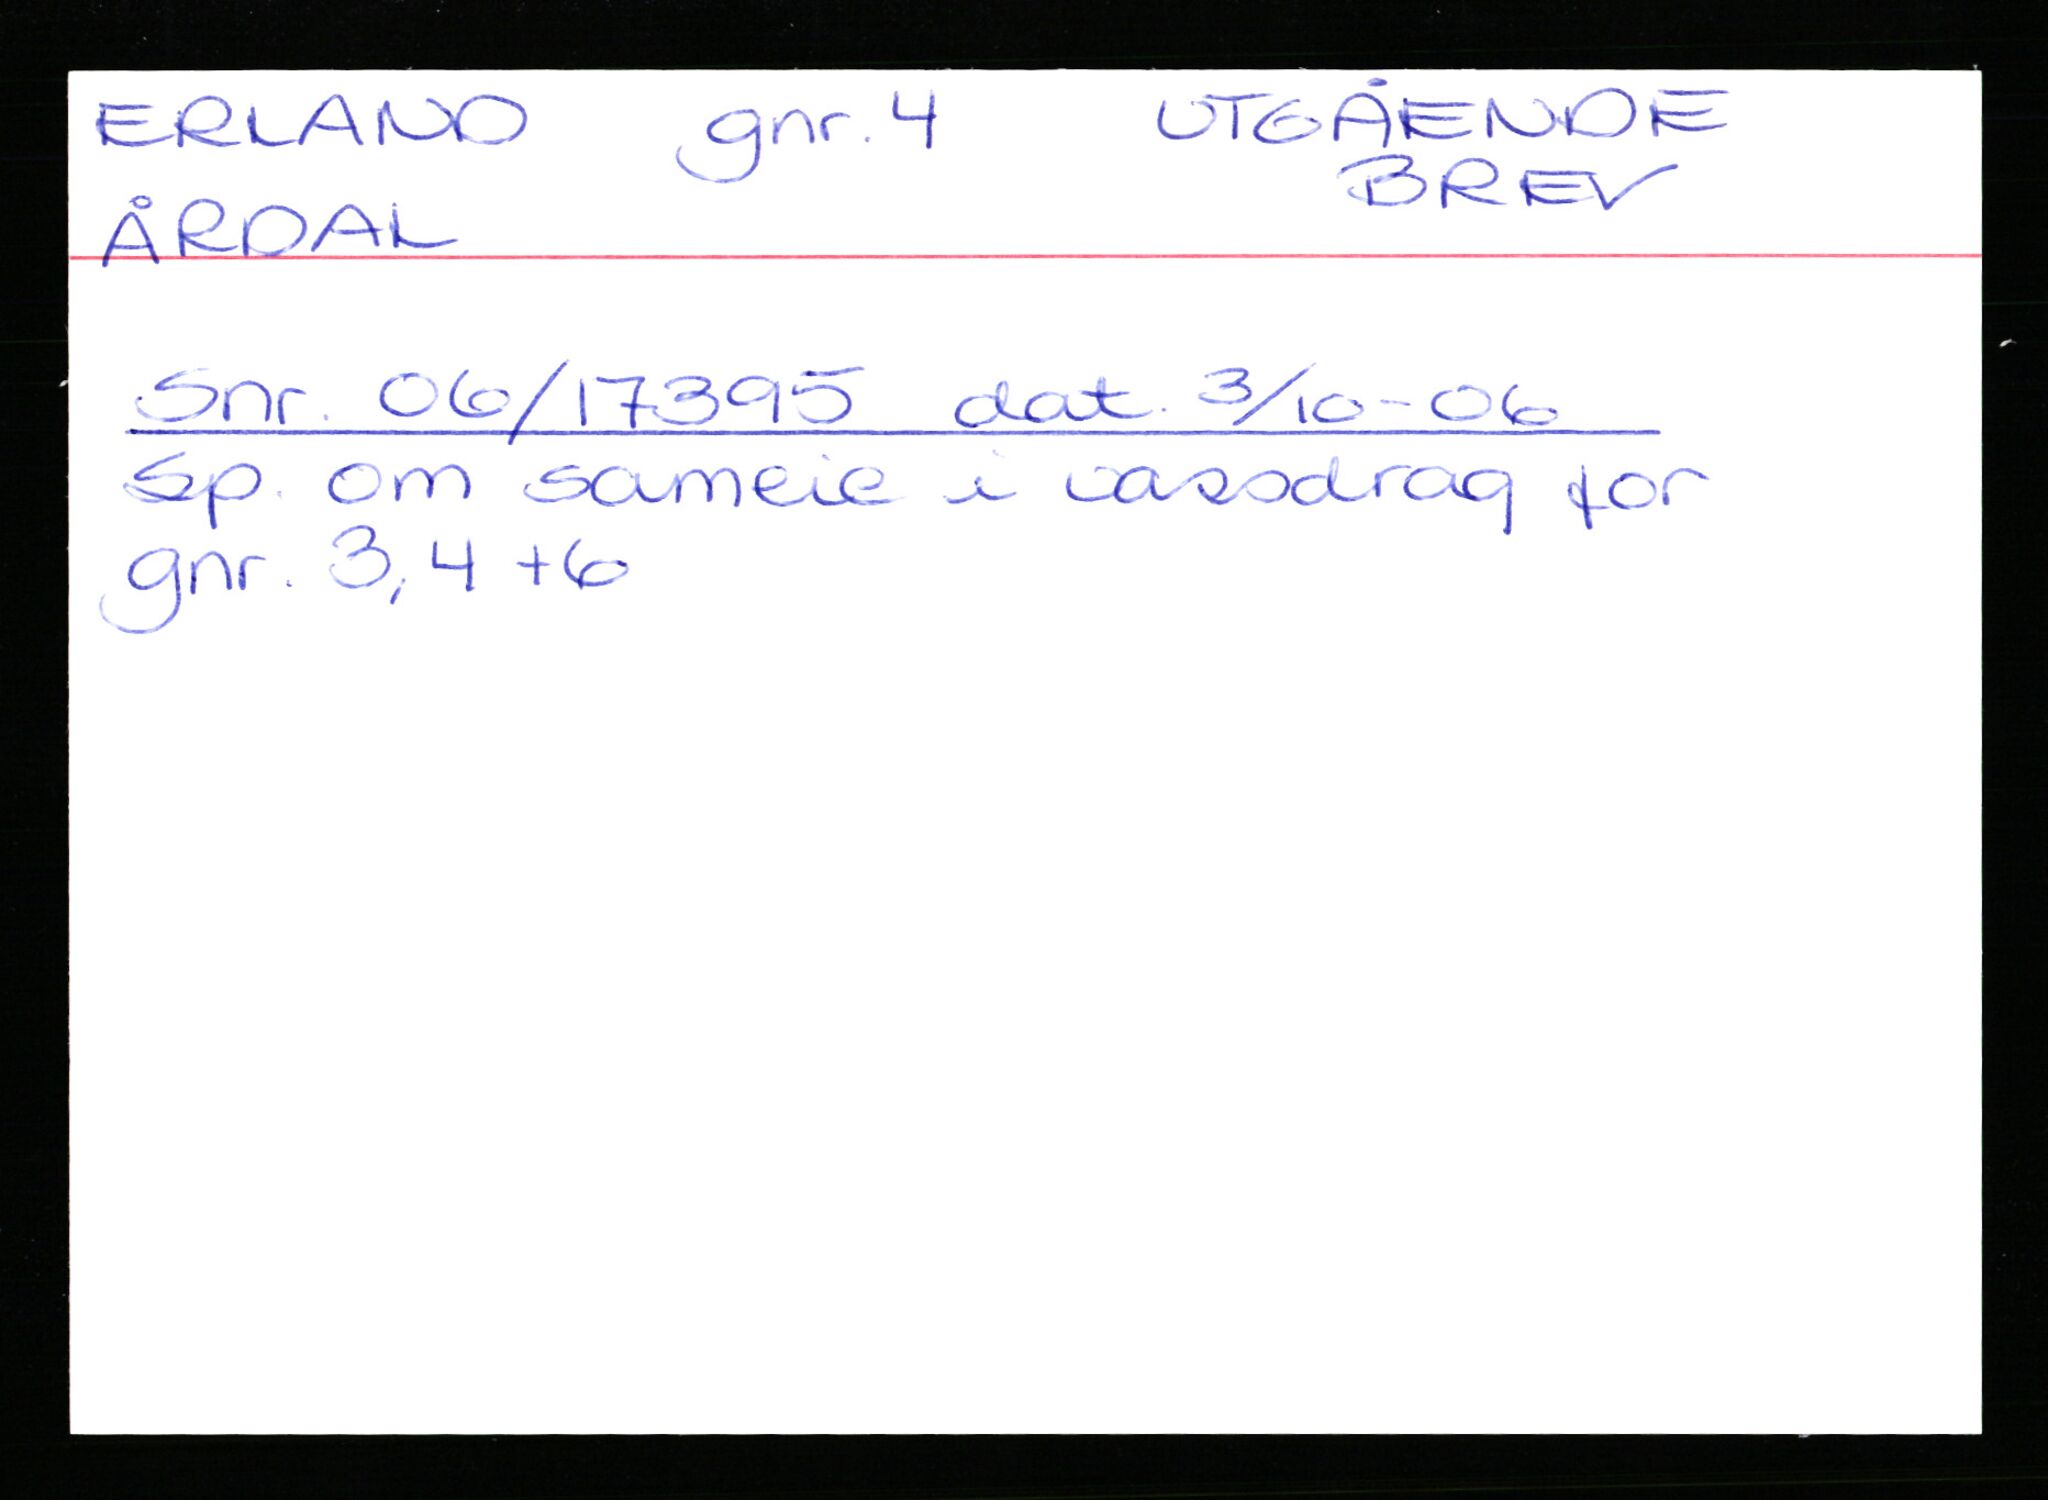 ERLAND gnr. 4 UTGÅENDE
BREV
ÅRDAL
Snr. 06/17395 dat. 3/10-06
Sp. om sameie i vassdrag for
gnr. 3, 4 + 6